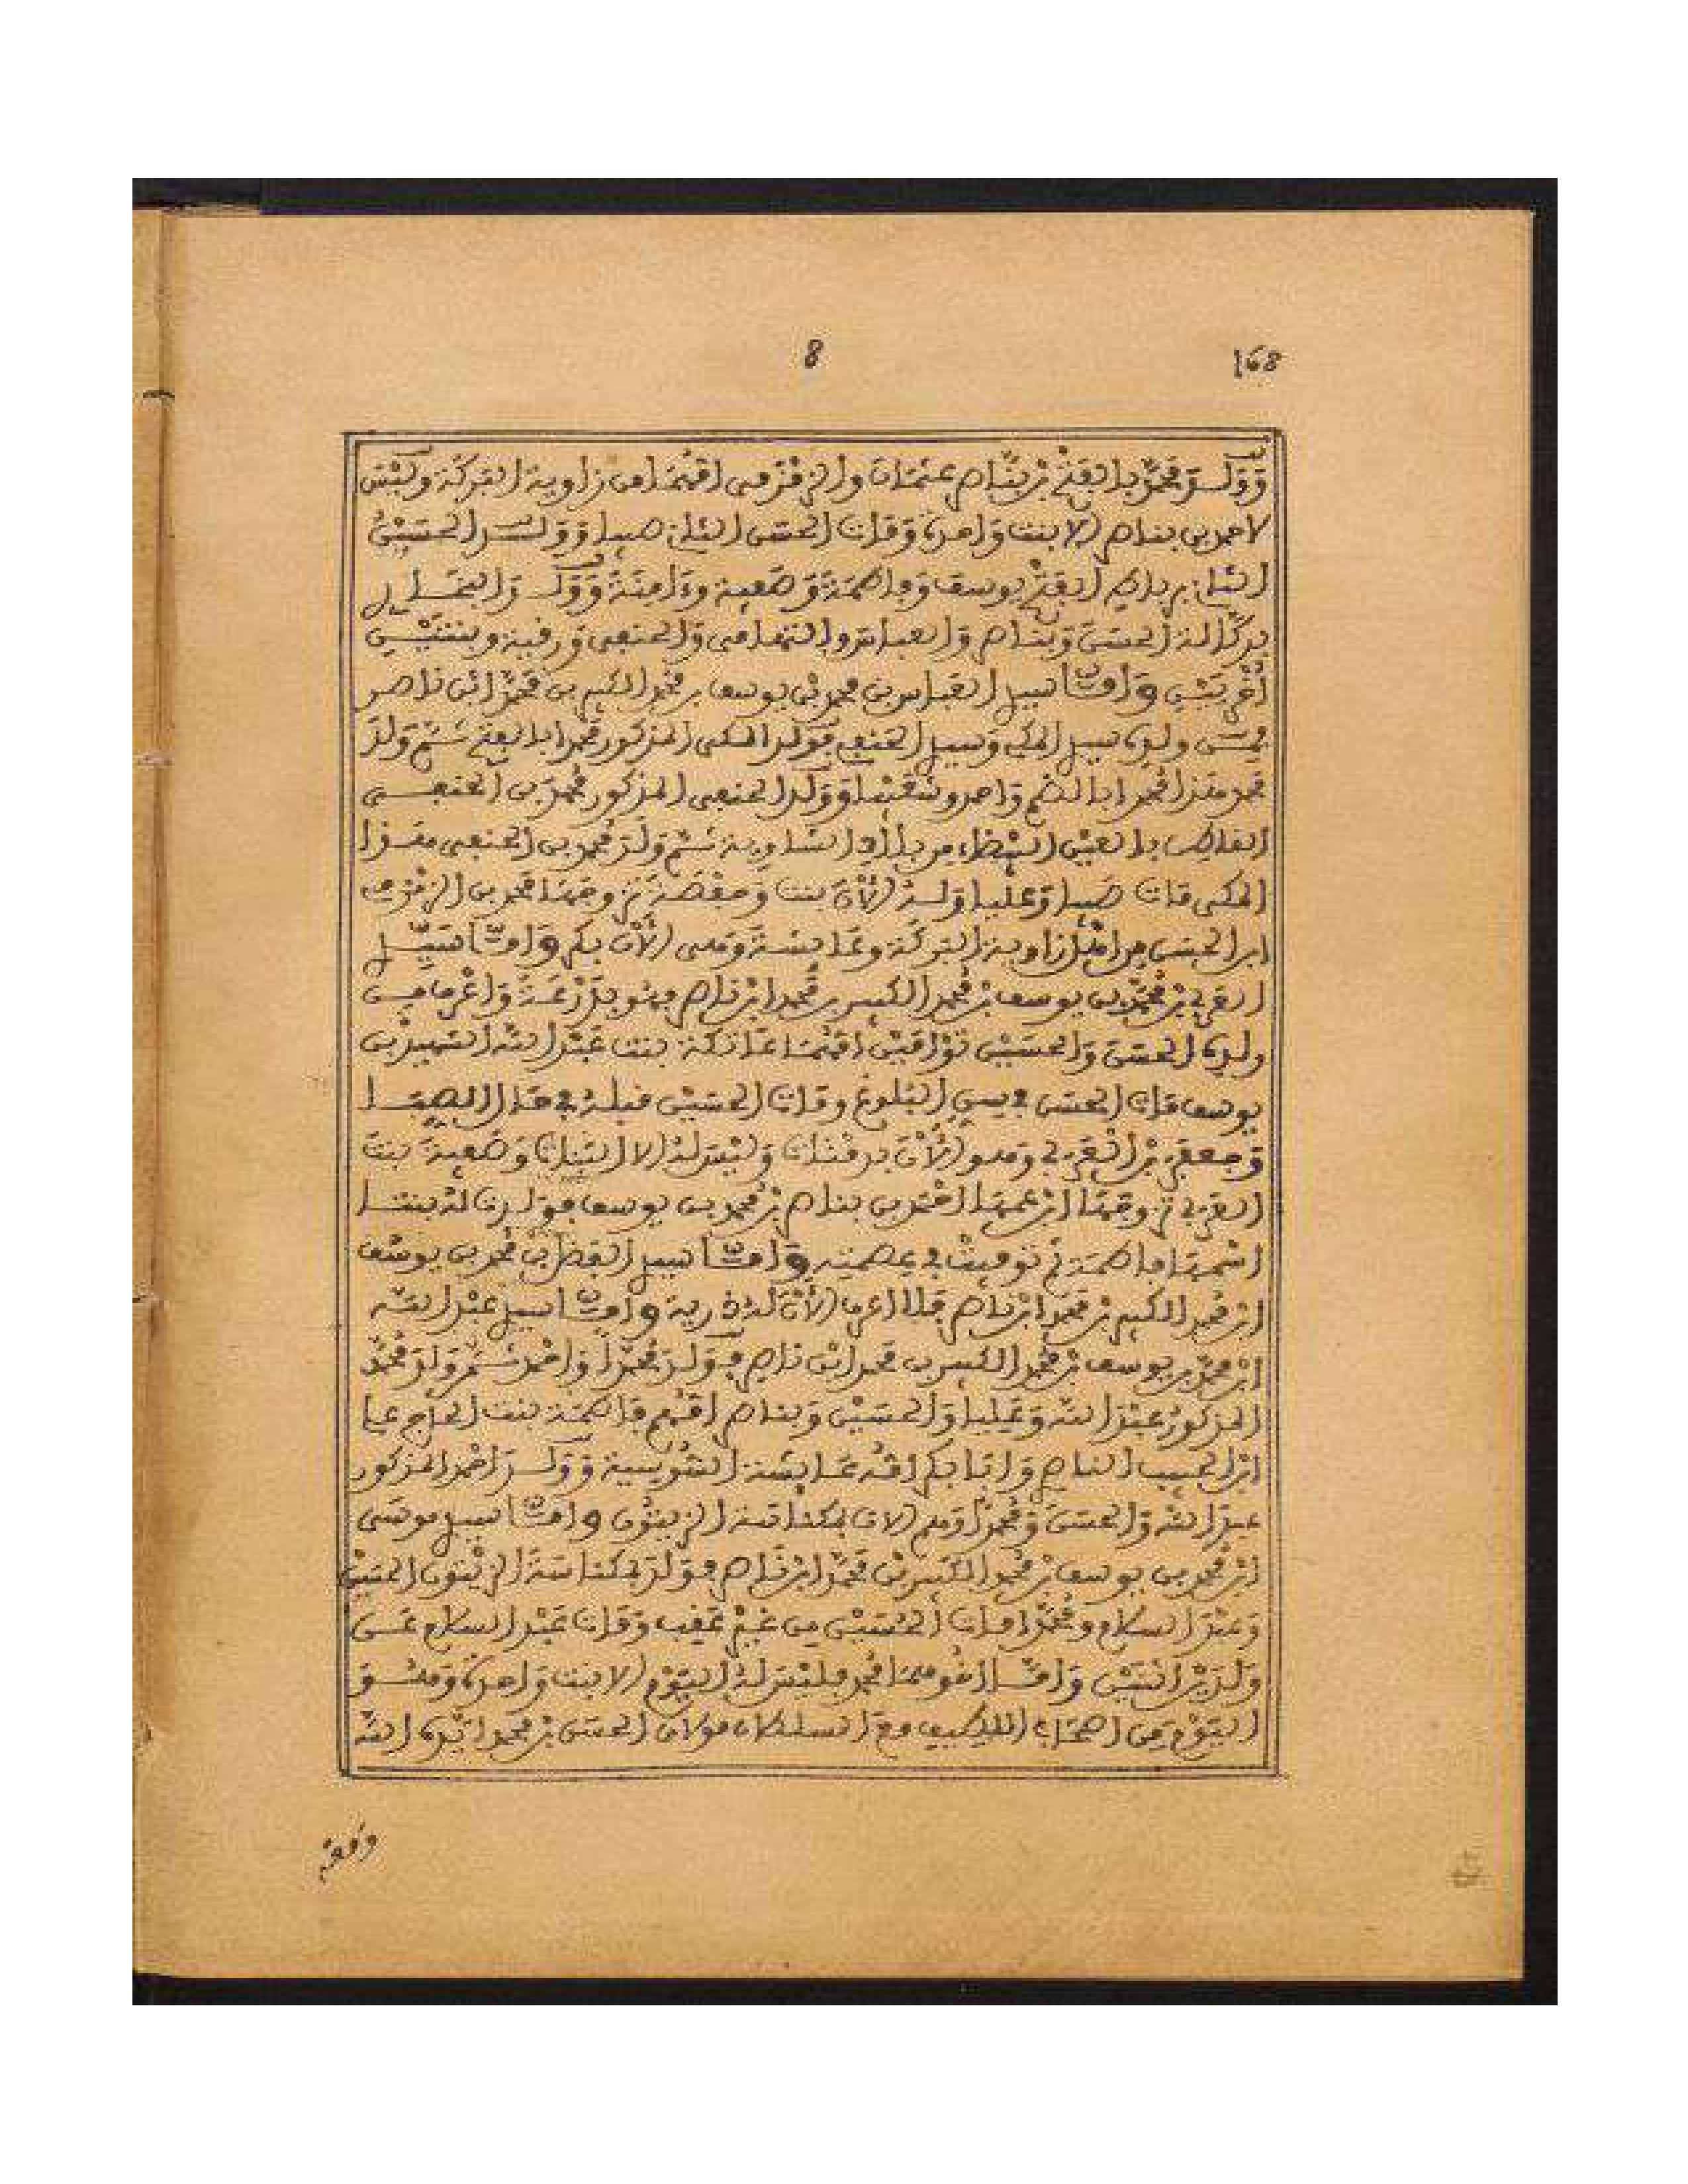 8
168
وَوَلَدَ مُحَمَّد بالفتح بن بناصر عثمان والزمزمي امُّهُما من زاوية البَركة وليْسَ
لاحمد بن بناصر إلا بنت واحدة وَمَاتَ الحسَن الثاني صبيا وَوَلَدَ الحُسَيْنُ
الثاني بن بناصر الفتحَ ويوسف وفاطمة وصَفية وءَامِنَة وَوَلَدَ
بركالة الحسَنَ وبَناصر وَالعباسَ والتهامي وَالحنفي وَرقية وبنتَيْن
أُخْرَيَيْن وَامَّا سيدي العباس بن محمد بن يوسف بن محمد الكبير بن مُحمد ابن ناصر
فمِنْ ولده سيدي المكي وَسيدي الحنفي فَوَلدَ المكي المذكور مُحمدا بالفتح ثم وَلَدَ
محمد هَذا مُحمدا بالضم وَاحمد وشعيبا وَوَلَدَ الحنفي المذكور مُحمدَ بن الحنفي
القاطن بالعين البيْضاء من بلاد الشاوية ثم وَلَدَ مُحمد بن الحنفي هَذا
المكي مَاتَ صَبيا وَعليا وَلَدُ الآن بنت وَحفصة تزوجها محمد بن الزمزمي
ابن الحسَن من اهْل زاوية البَركة وعَائشة وَهي الآن بكر وَامَّا سَيدي
العَربي بن مُحَمَّد بن يوسف بن مُحمد الكبير بن مُحمد ابن ناصر فهو بِدَرْعَةَ وَاعْقَابُه مِن
ولده الحسَن وَالحسَيْن تَوْأمَيْن امُّهُما عَاتكة بنت عَبْد الله الشهيد بن
يوسف مَاتَ الحسَن في سن البُلوغ ومَاتَ الحسَيْن قبله في حَال الصِّبَا
وَجعفر بن العَربي وَهو الآنَ بمراكش وَليْسَ لَهُ إلا البَنَات وَصَفية بنت
العَربي تزوجهَا ابن عمها احْمد بن بناصر بن مُحمد بن يوسف فوَلدت لهُ بنتا
اسْمهَا فاطمة ثم توفيتْ في عصمته وَامَّا سيدي الفضل بن مُحمد بن يوسف
ابن مُحمد الكبير بن مَحمد ابن ناصر فلا اعرف الآنَ لَهُ ذرية وامَّا سيدي عبْد الله
ابْن محمد بن يوسف بن مُحمد الكبير بن مَحمد ابن ناصر فوَلَدَ مُحَمَّداً وَاحْمَد ثُم وَلَدَ مُحَمَّد
المذكورُ عبْدَ الله وَعَليا وَالحسَيْن وَبناصر امُّهُم فاطمَة بنت الحَاج علي
ابن الحبيب الناصري وَابَا بكر امُّه عَائشة السُّوسِية وَوَلَدَ احْمد المذكور
عبدَ الله وَالحسَنَ وَمُحمداً وَهم الآن بمكناسة الزيتون وامَّا سيدي موسَى
ابن مُحمد بن يوسف بن مُحمد الكبير بن مَحمد ابن نَاصر فوَلَدَ بمكناسَة الزيْتون الحسَيْنَ
وَعَبْدَ السلام ومُحمداً مَاتَ الحُسَيْن مِن غَيْر عَقِب وَمَاتَ عَبْد السلام عَن
وَلَدَيْن اثنَيْن وَامَّا اخُوهُمَا مُحمد فليْسَ لَهُ اليَوْم إلا بنت وَاحدة وَهُو
اليَوْم مِن اصْحَابِ مَعَ السلطان مَولانا الحسَن بن محمد ايَّدَهُ الله